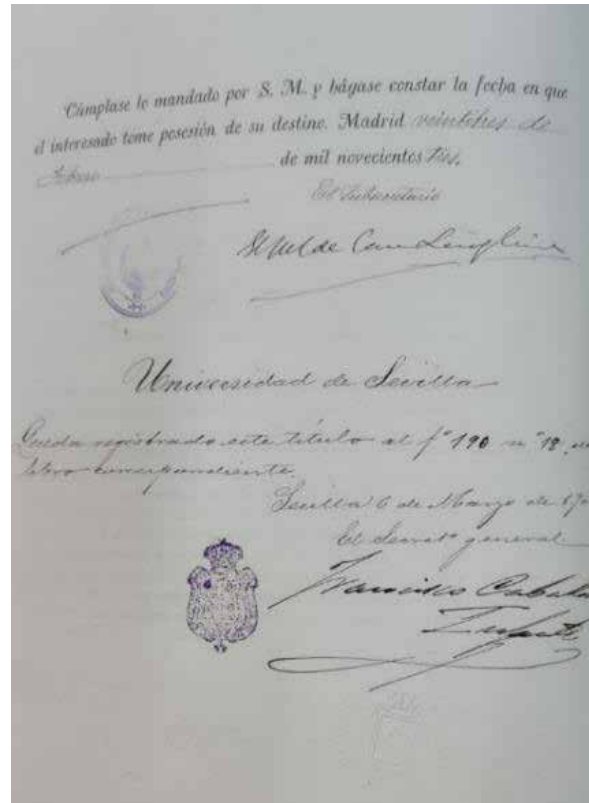 Cúmplase lo mandado por S. M. y hágase constar la fecha en que
el interesado tome posesión de su destino. Madrid veintitres de
de mil novecientos tres.
El Subsecretario
Universidad de Sevilla
Queda registrado este título al fº 190 nº 18
libro correspondiente.
Sevilla 6 de Marzo de
El Secretº general
Francisco
Infante